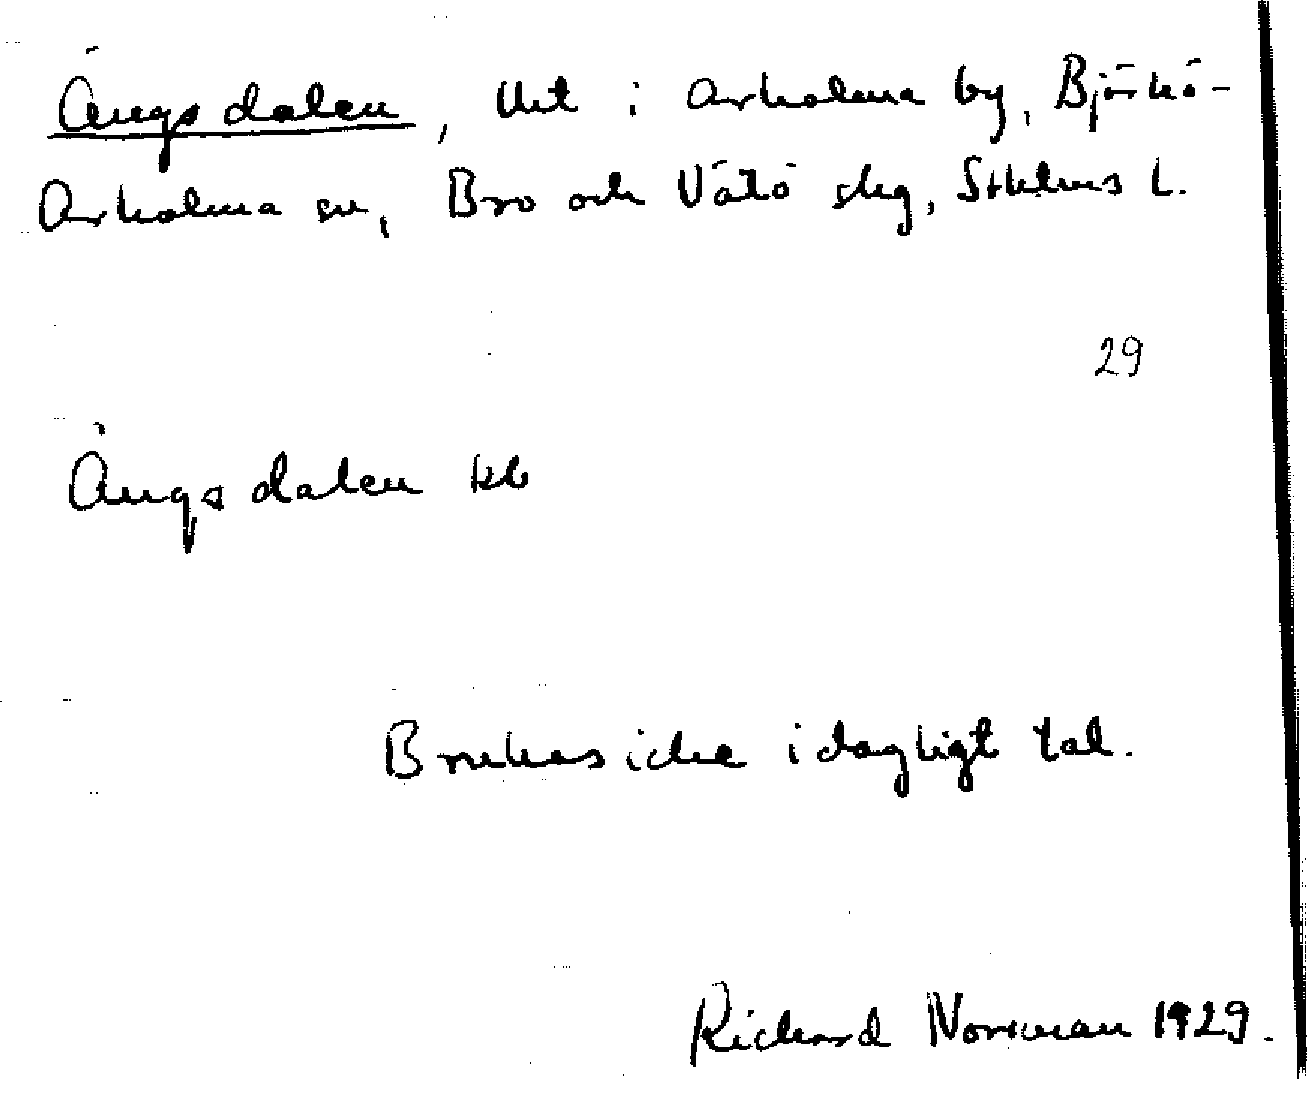 Ängsdalen, lht i Arholma by, Björkö-
Arholma sn, Bro och Vätö skg, Sthlms l.
29
Ängsdalen kb
Brukas icke i dagligt tal.
Richard Norrman 1929.